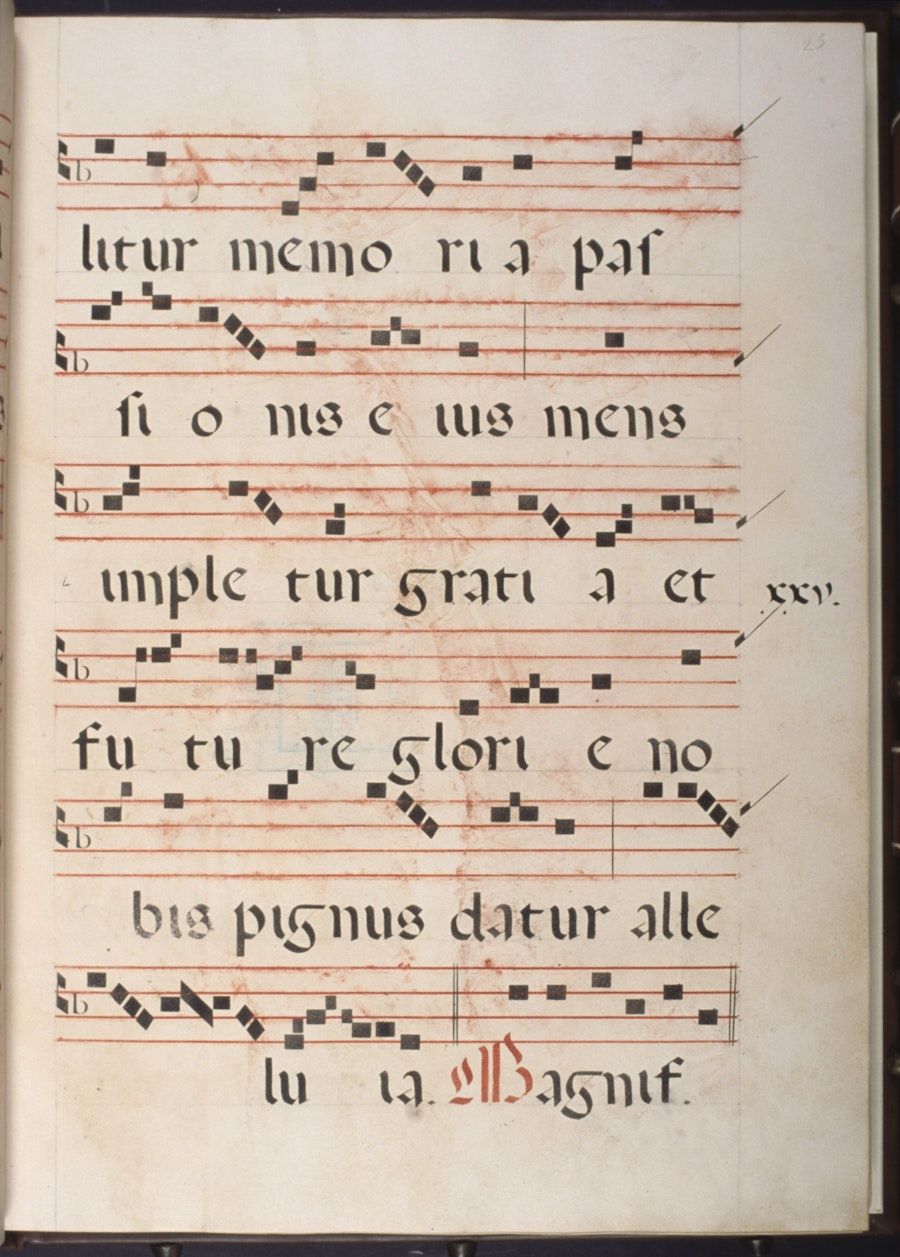 25
litur memo ri a paſ
ſi o nis e ius mens
imple tur grati a et
xxv.
fu tu re glori e no
bis pignus datur alle
lu ia. Magnif.